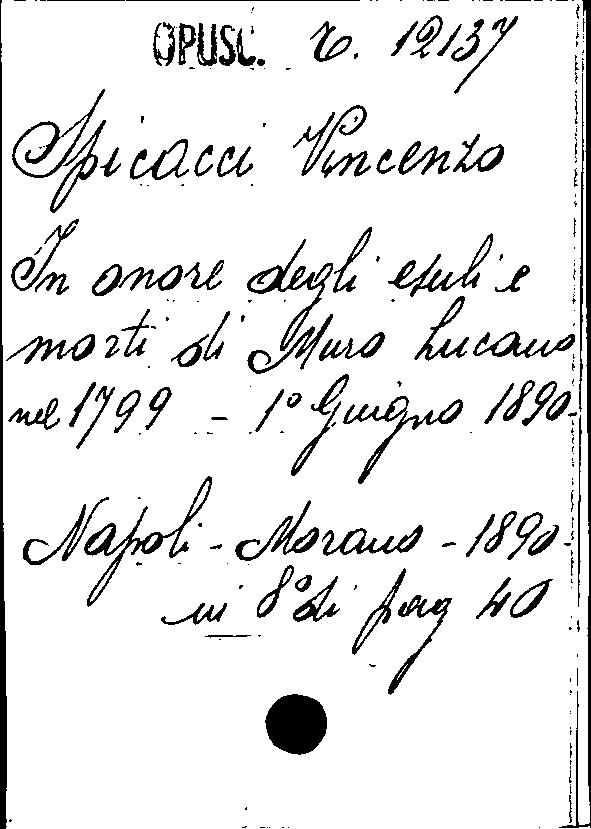 OPUSC. T. 12137
Spicacci Vincenzo
In onore degli esuli e
morti di Muro Lucano
nel 1799 - 1° Giugno 1890-
Napoli - Morano - 1890-
in 8° di pag 40